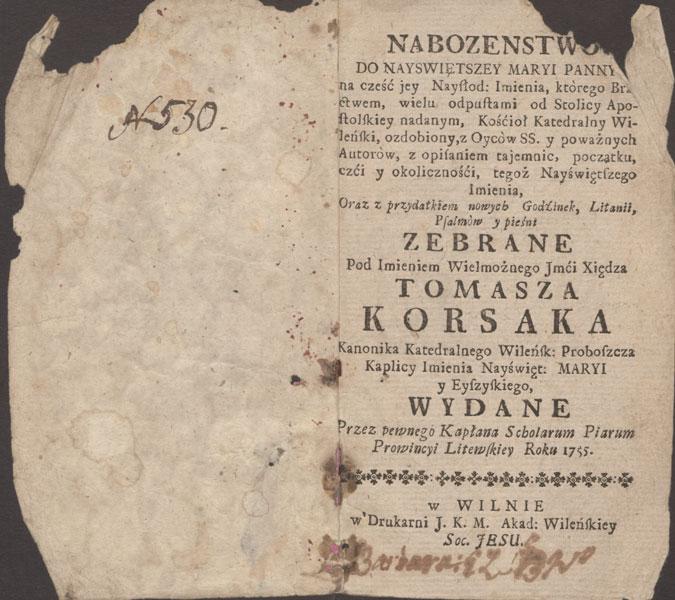 N 530.
NABOZENSTWO
DO NAYSWIĘTSZEY MARYI PANNY
na cześć jey Nayſłod: Imienia, którego Bra
ctwem, wielu odpuſtami od Stolicy Apo-
ſtolſkiey nadanym, Kośćioł Katedralny Wi-
leńſki, ozdobiony, z Oyców SS. y poważnych
Autorów, z opiſaniem tajemnic, początku,
czći y okolicznośći, tegoż Nayświętſzego
Imienia,
Oraz z przydatkiem nowych Godźinek, Litanii,
Pſalmòw y pieśni
ZEBRANE
Pod Imieniem Wielmożnego Jmći Xiędza
TOMASZA
KORSAKA
Kanonika Katedralnego Wileńſk: Proboſzcza
Kaplicy Imienia Nayświęt: MARYI
y Eyſzyſkiego,
WYDANE
Przez pewnego Kapłana Scholarum Piarum
Prowincyi Litewſkiey Roku 1755.
w WILNIE
w Drukarni J. K. M. Akad: Wileńſkiey
Soc. JESU.